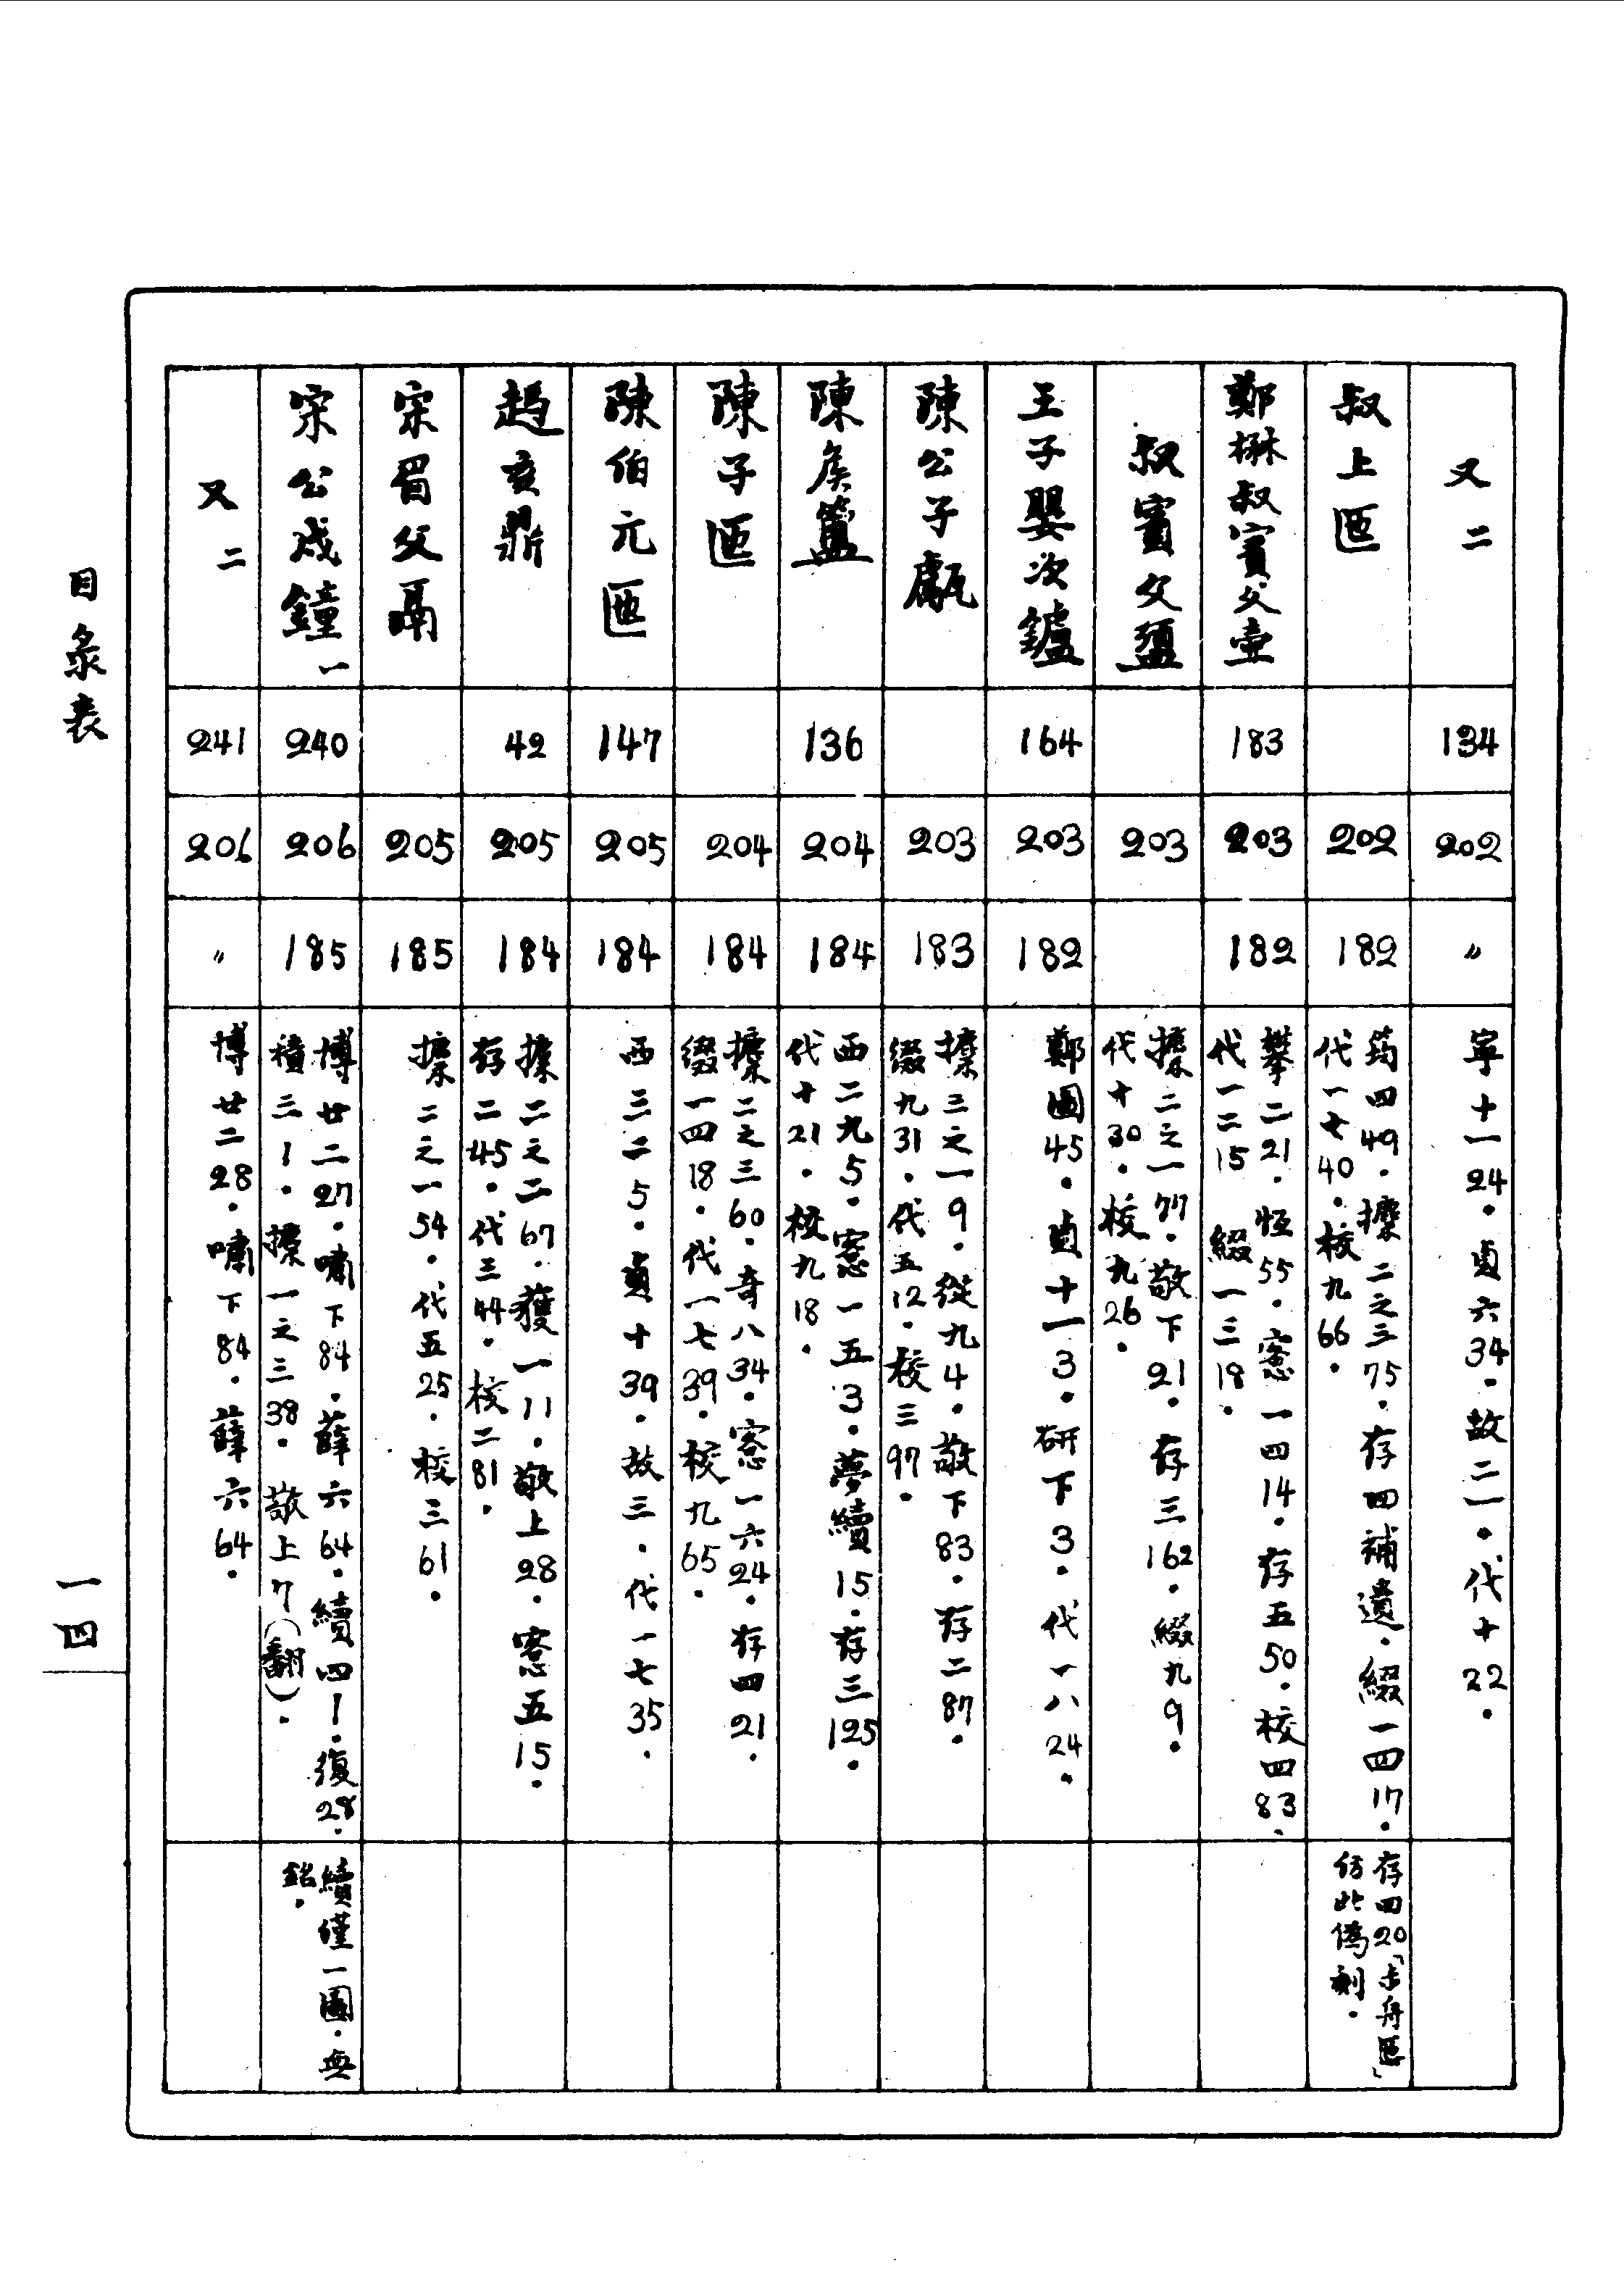 又二
134
202
〃
寧十一24.貞六34.故二一.代十22.
叔上匜
202
182
筠四49.攈二之三75.存四補遺.綴一四17.
代一七40.校九66.
存四20「未舟匜」
仿此偽刻.
鄭楙叔賓父壺
183
203
182
攀二21.恆55.愙一四14.存五50.校四83.
代一二15 綴一三18.
叔賓父盨
203
攈二之一77.敬下21.存三162.綴九9.
代十30.校九26.
王子嬰次鑪
164
203
182
鄭圖45.貞十一3.研下3.代一八24.
陳公子甗
203
183
攈三之一9.從九4.敬下83.存二87.
綴九31.代五12.校三97.
陳矦簠
136
204
184
西二九5.愙一五3.夢續15.存三125.
代十21.校九18.
陳子匜
204
184
攈二之三60.奇八34.愙一六24.存四21.
綴一四18.代一七39.校九65.
陳伯元匜
147
205
184
西三二5.貞十39.故三.代一七35.
趞亥鼎
42
205
184
攈二之二67.獲一11.敬上28.愙五15.
存二45.代三44.校二81.
宗眉父鬲
205
185
攈二之一54.代五25.校三61.
宋公戍鐘一
240
206
185
博廿二27.嘯下84.薛六64.續四1.復28.
積三1.攈一之三38.敬上7(翻).
續僅一圖.無
銘.
又二
241
206
〃
博廿二28.嘯下84.薛六64.
目彔表
一四